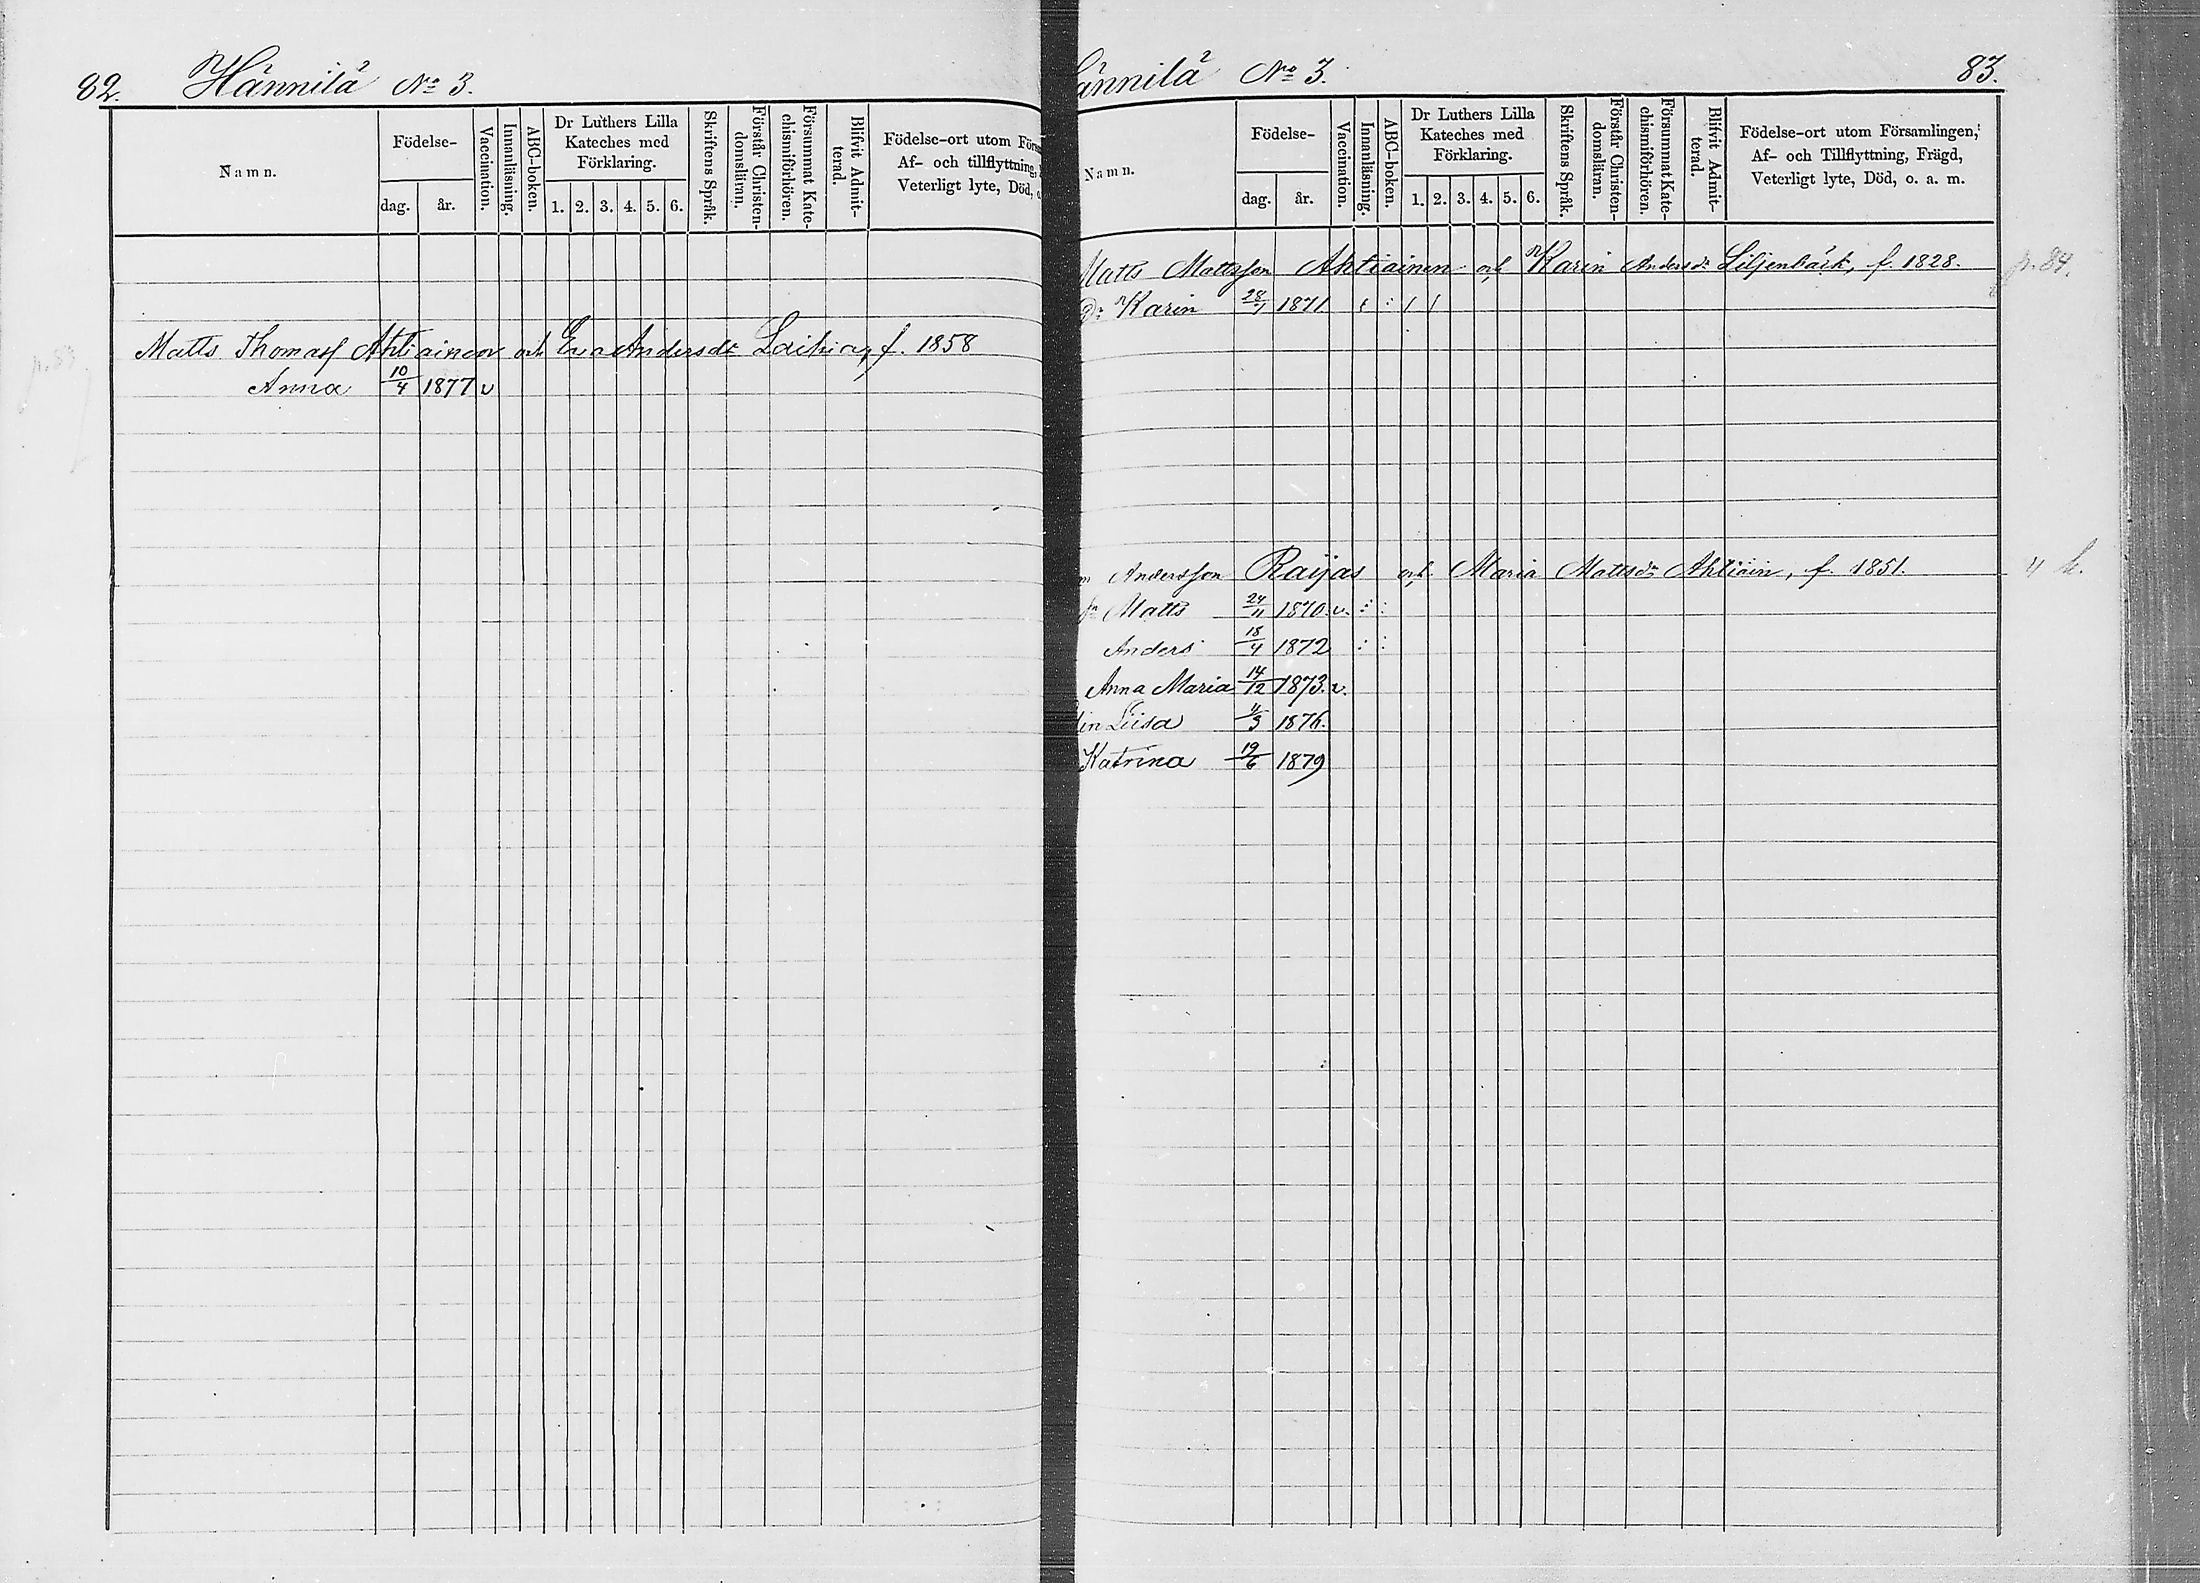 82. Hännilä No 3.
Namn.
Födelse-
dag.
år.
Vaccination.
Innanläsning.
ABC-boken.
Dr Luthers Lilla
Kateches med
Förklaring.
1. 2. 3. 4. 5. 6.
Skriftens Språk.
Förstår Christen-
domsläran.
Försummat Kate-
chismiförhören.
Blifvit Admit-
terad.
Födelse-ort utom
Af- och tillflyttning,
Veterligt lyte, Död,
Matts Thomasf Ahtiainen och Eva Andersdr f. 1858
Anna 10/4 1877 v
ännilä No 3. 83.
Namn.
Födelse-
dag.
år.
Vaccination.
Innanläsning.
ABC-boken.
Dr Luthers Lilla
Kateches med
Förklaring.
1. 2. 3. 4. 5. 6.
Skriftens Språk.
Förstår Christen-
domsläran.
Försummat Kate-
chismiförhören.
Blifvit Admit-
terad.
Födelse-ort utom Församlingen,
Af- och Tillflyttning, Frägd,
Veterligt lyte, Död, o. a. m.
Matts Mattsson Ahtiainen och Karin Andersdr Liljenbäck, f. 1828. p. 84.
Dr Karin 1871
Andersson Raijas och Maria Mattsdr Ahtiain, f. 1851.
Matts 24/11 1870. v.
Anders 18/4 1872
Anna Maria 14/12 1873. v.
lin Liisa 1876.
Katrina 19/6 1879